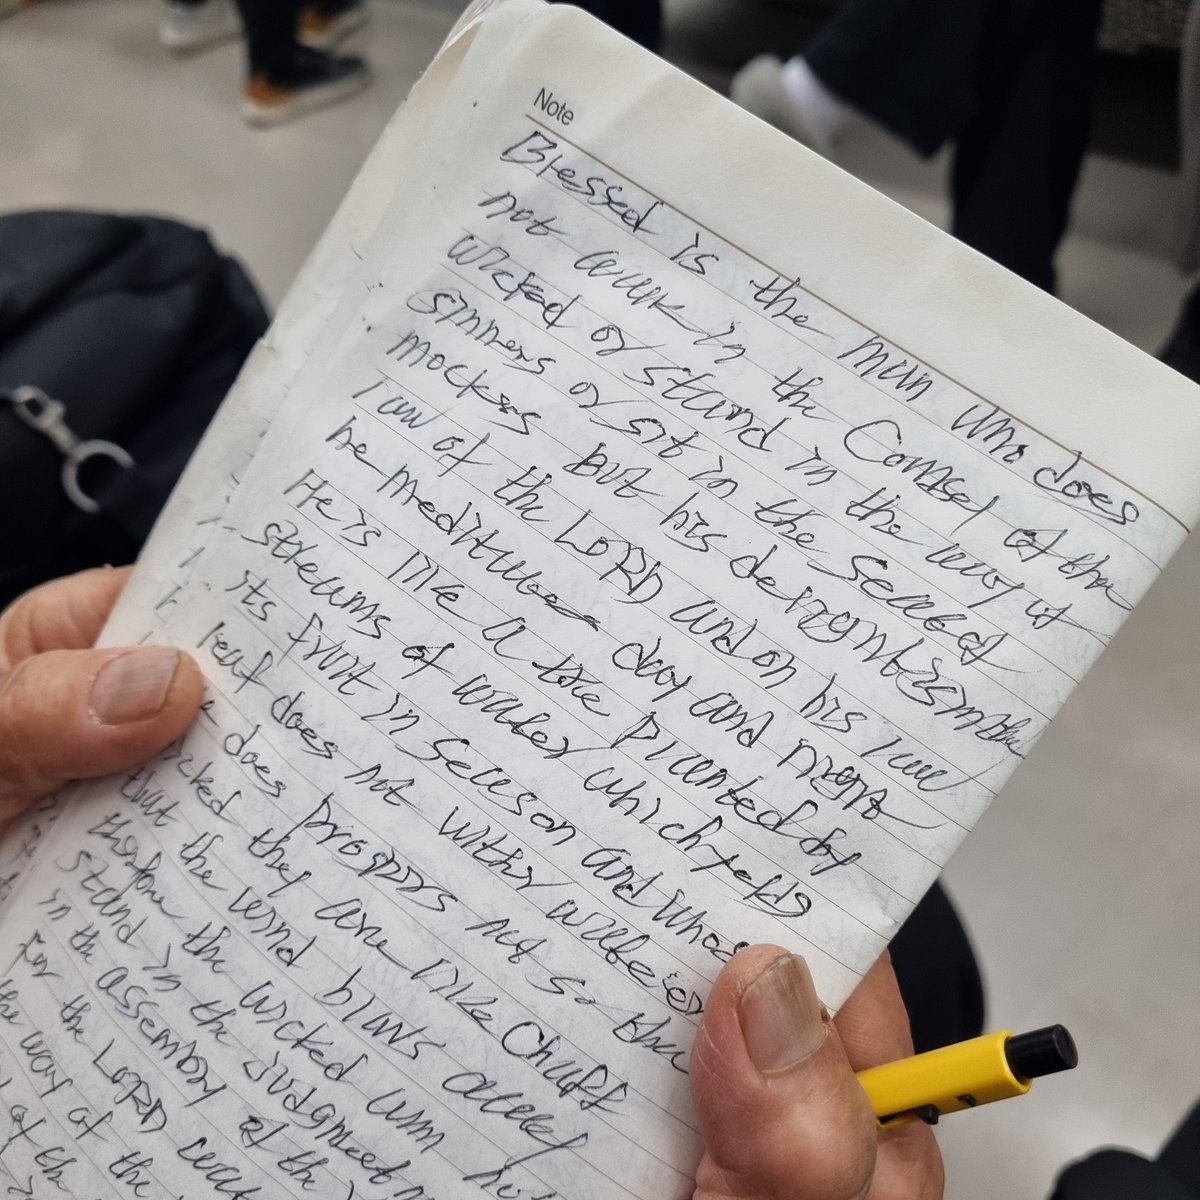 Note
Blessed is the man who does
not walk in the Counsel of the
wicked or stand in the way of
sinners or sit in the seat of
mockers But his delight is in the
law of the LORD and on his law
he meditates day and night
He is like a tree planted by
streams of water which yields
its fruit in season and whose
leaf does not wither whatever
does prospers not so the
wicked they are like chaff
that the wind blows away
therefore the wicked will not
stand in the judgment
in the assembly of the
for the LORD
the way of the
of the